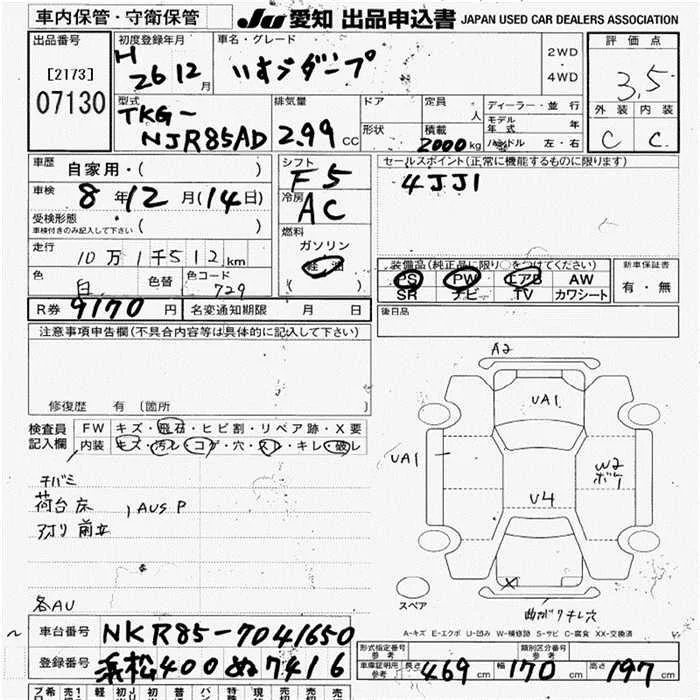 車内保管・守衛保管
JU 愛知 出品申込書 JAPAN USED CAR DEALERS ASSOCIATION
出品番号
[2173]
07130
初度登録年月
H 26 12 月
車名・グレード
いすゞダンプ
2WD
・
4WD
評価点
3.5
外装 内装
C C
型式
TKG-
NJR85AD
排気量
2.99 CC
ドア
形状
定員 人
積載 2000kg
ディーラー・並行
モデル年式 年
ハンドル 左・右
車歴
自家用・( )
車検
8年12月(14日)
受検形態
車検付きのみ記入して下さい ( )
走行
10万1千512km
色 白 色替 色コード 729
R券 9170 円 名変通知期限 月 日
シフト
F5
冷房
AC
燃料
ガソリン
軽油
( )
セールスポイント(正常に機能するものに限ります)
4JJ1
装備品(純正品に限り○をつけてください)
PS PW エアB AW
SR ナビ TV カワシート
新車保証書
有・無
後日品
注意事項申告欄(不具合内容等は具体的に記入して下さい)
修復歴 有 (箇所 )
検査員記入欄
FW キズ・飛石・ヒビ割・リペア跡・X要
内装 キズ・汚レ・コゲ・穴・スレ・キレ・破レ
チバミ
荷台床 , AUS P
アオリ 前立
各AU
A2
UA1
UA1
W2
ボ1
U4
X
曲がりチレ穴
スペア
A-キズ E-エクボ U-凹み W-補修跡 S-サビ C-腐食 XX-交換済
車台番号 NKR85-7041650
登録番号 浜松400ぬ7416
型式指定番号 参考
類別区分番号 参考
車庫証明用 参考 長さ 469cm 幅 170cm 高さ 197cm